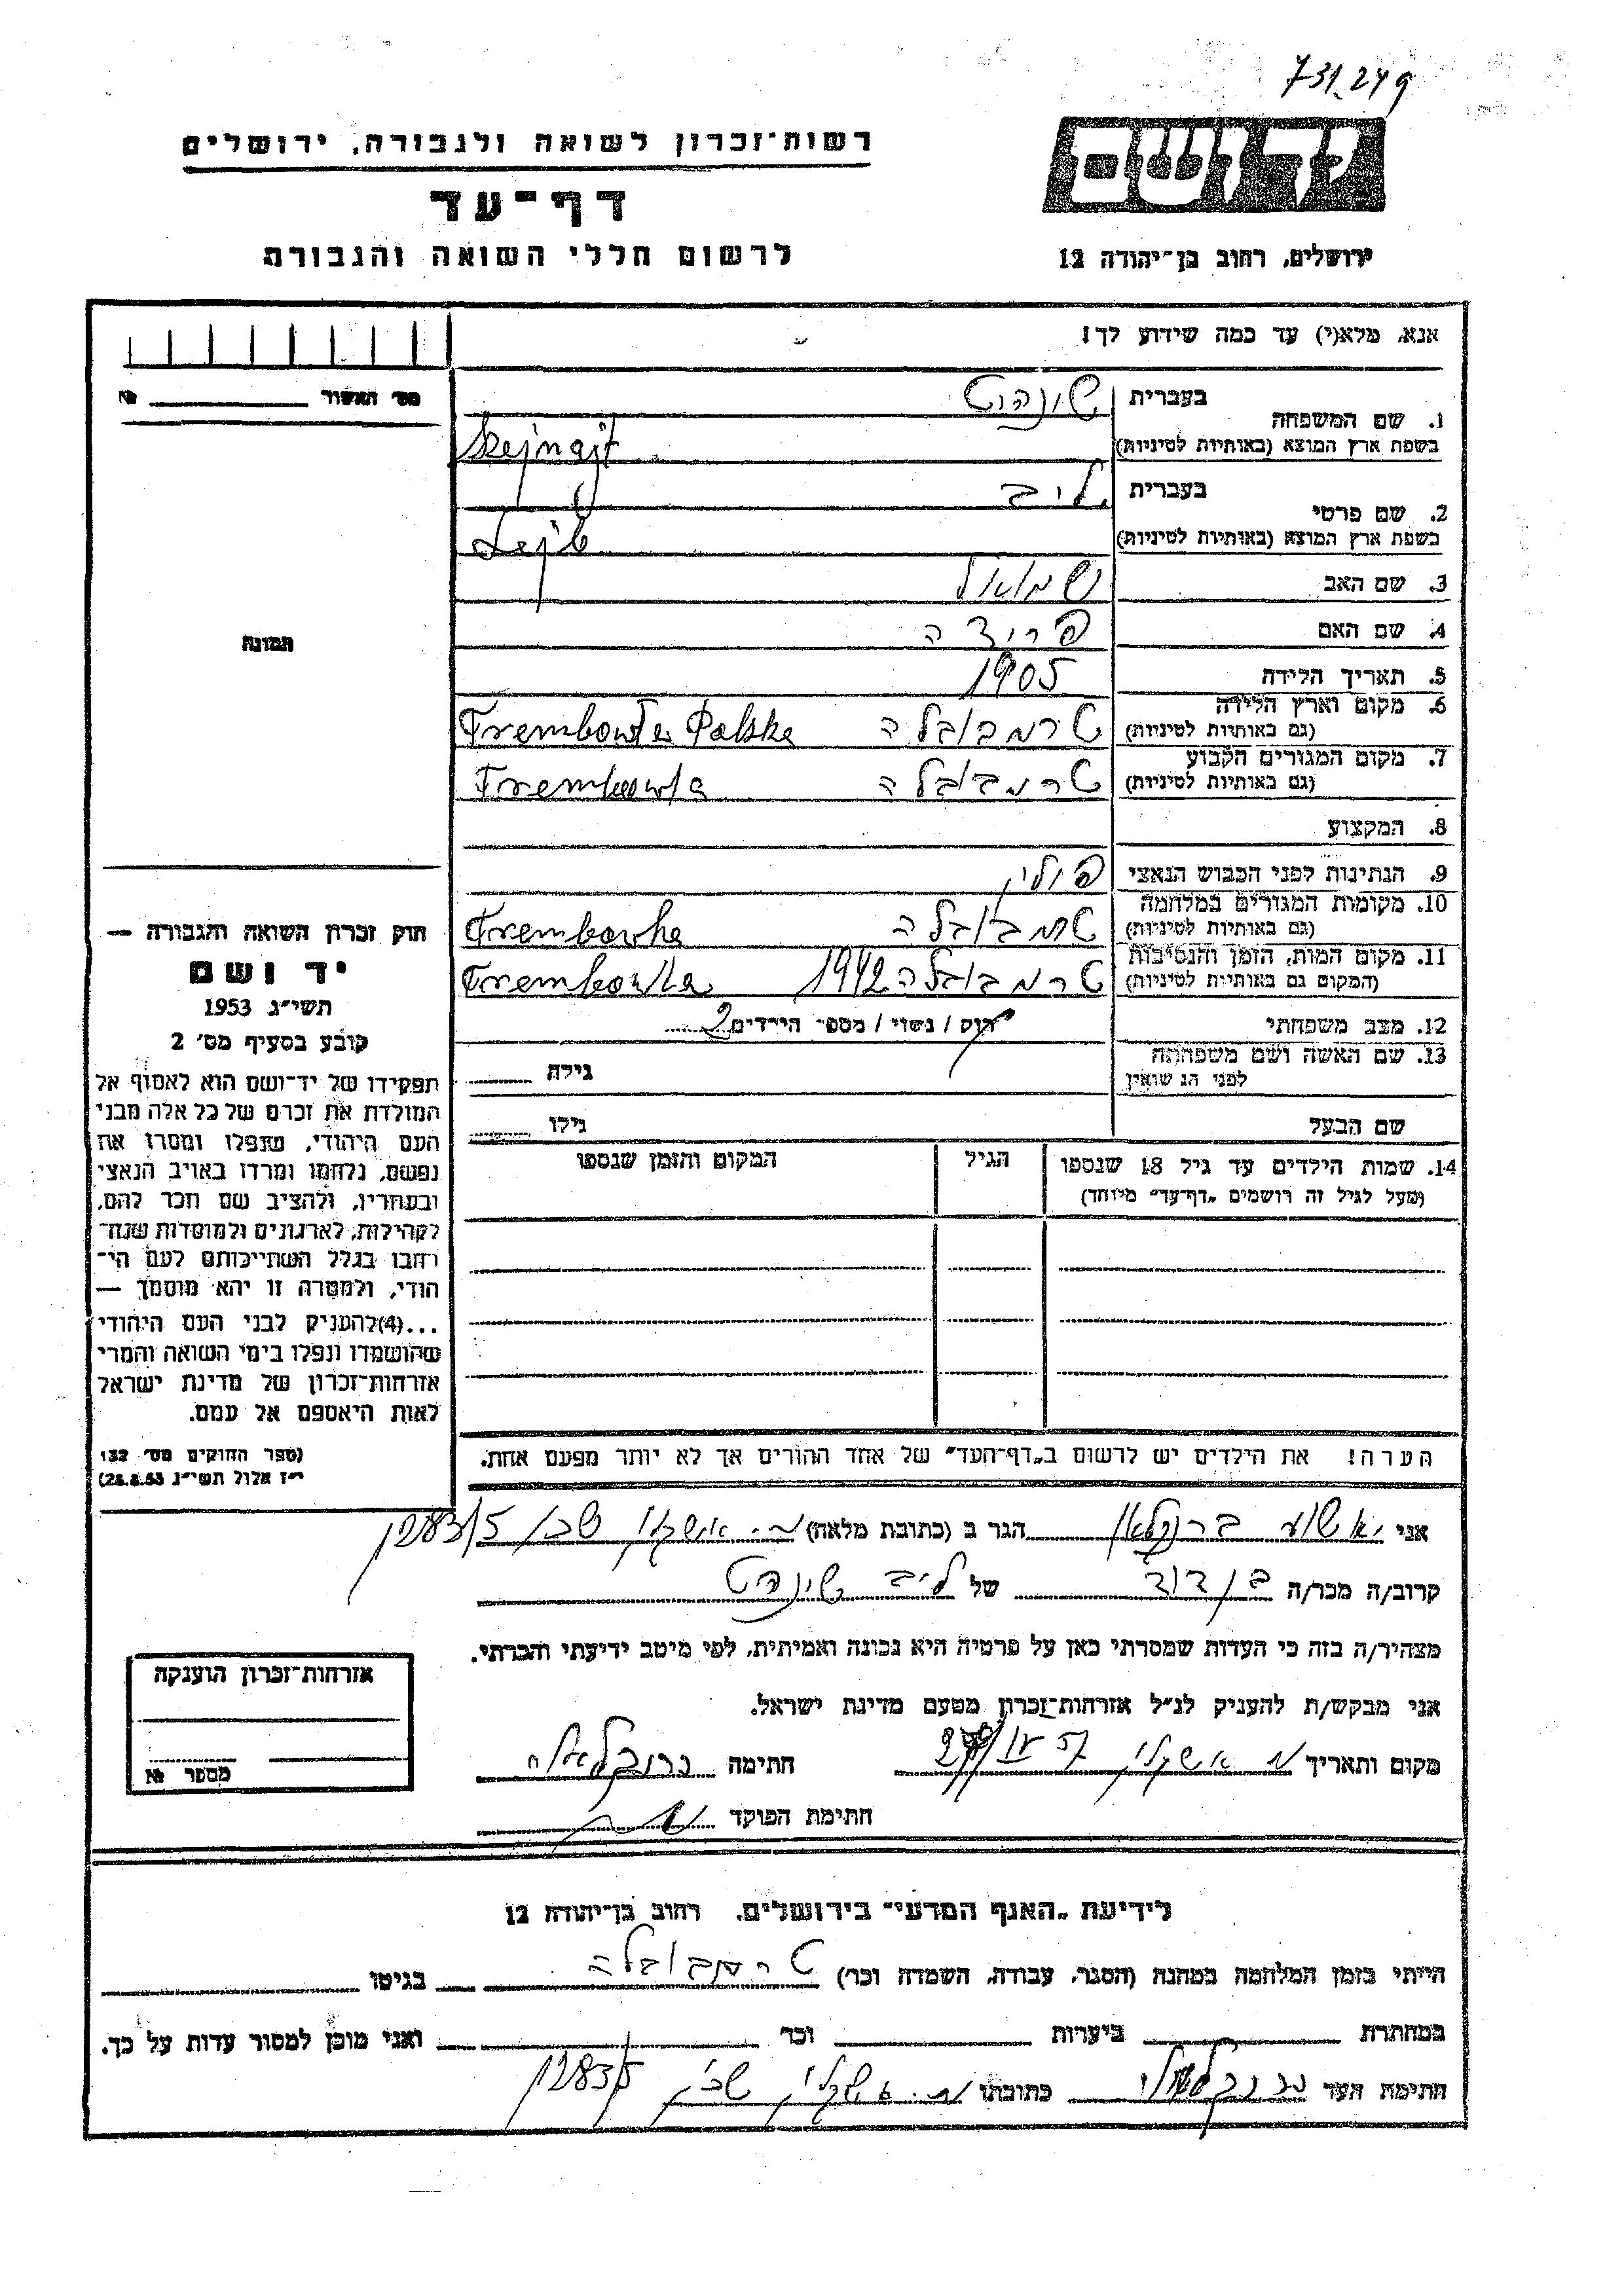 731.249
רשות־זכרון לשואה ולגבורה, ירושלים
דף־עד
לרשום חללי השואה והגבורה
יד ושם
ירושלים, רחוב בן־יהודה 12
אנא, מלא(י) עד כמה שידוע לך!
מס׳ האשור № 
1. שם המשפחה בעברית
בשפת ארץ המוצא (באותיות לטיניות) Szejnajt
2. שם פרטי בעברית ליב
בשפת ארץ המוצא (באותיות לטיניות) Lejb
3. שם האב שמואל
4. שם האם פרידה
5. תאריך הלידה 1905
6. מקום וארץ הלידה
(גם באותיות לטיניות) טרמבובלה Trembowla Polska
7. מקום המגורים הקבוע
(גם באותיות לטיניות) טרמבובלה Trembowla
8. המקצוע
9. הנתינות לפני הכבוש הנאצי פולין
10. מקומות המגורים במלחמה
(גם באותיות לטיניות) טרמבובלה
11. מקום המות, הזמן והנסיבות
(המקום גם באותיות לטיניות) טרמבובלה 1942 Trembowla
12. מצב משפחתי רוק / נשוי / מספר הילדים 2
13. שם האשה ושם משפחתה
לפני הנשואין גילה
שם הבעל גילו
14. שמות הילדים עד גיל 18 שנספו הגיל המקום והזמן שנספו
(מעל לגיל זה רושמים „דף־עד״ מיוחד)
הערה! את הילדים יש לרשום ב„דף־העד״ של אחד ההורים אך לא יותר מפעם אחת.
תמונה
חוק זכרון השואה והגבורה —
יד ושם
תשי״ג 1953
קובע בסעיף מס׳ 2
תפקידו של יד־ושם הוא לאסוף אל
המולדת את זכרם של כל אלה מבני
העם היהודי, שנפלו ומסרו את
נפשם, נלחמו ומרדו באויב הנאצי
ובעוזריו, ולהציב שם וזכר להם,
לקהילות, לארגונים ולמוסדות שנח־
רבו בגלל השתייכותם לעם הי־
הודי, ולמטרה זו יהא מוסמך —
...(4)להעניק לבני העם היהודי
שהושמדו ונפלו בימי השואה והמרי
אזרחות־זכרון של מדינת ישראל
לאות היאספם אל עמם.
(ספר החוקים מס׳ 132
י״ז אלול תשי״ג 28.8.53)
אני הגר ב (כתובת מלאה) מ. אשקלון 1283/5
קרוב/ה מכר/ה בן דוד של ליב
מצהיר/ה בזה כי העדות שמסרתי כאן על פרטיה היא נכונה ואמיתית, לפי מיטב ידיעתי והכרתי.
אני מבקש/ת להעניק לנ״ל אזרחות־זכרון מטעם מדינת ישראל.
מקום ותאריך מ אשקלון חתימה
חתימת הפוקד
אזרחות־זכרון הוענקה
מספר №
לידיעת „האגף המדעי״ בירושלים, רחוב בן־יהודה 12
הייתי בזמן המלחמה במחנה (הסגר, עבודה, השמדה וכו׳) טרמבובלה בגיטו
במחתרת ביערות וכו׳ ואני מוכן למסור עדות על כך.
חתימת העד כתובתו מ. אשקלון 1283/5